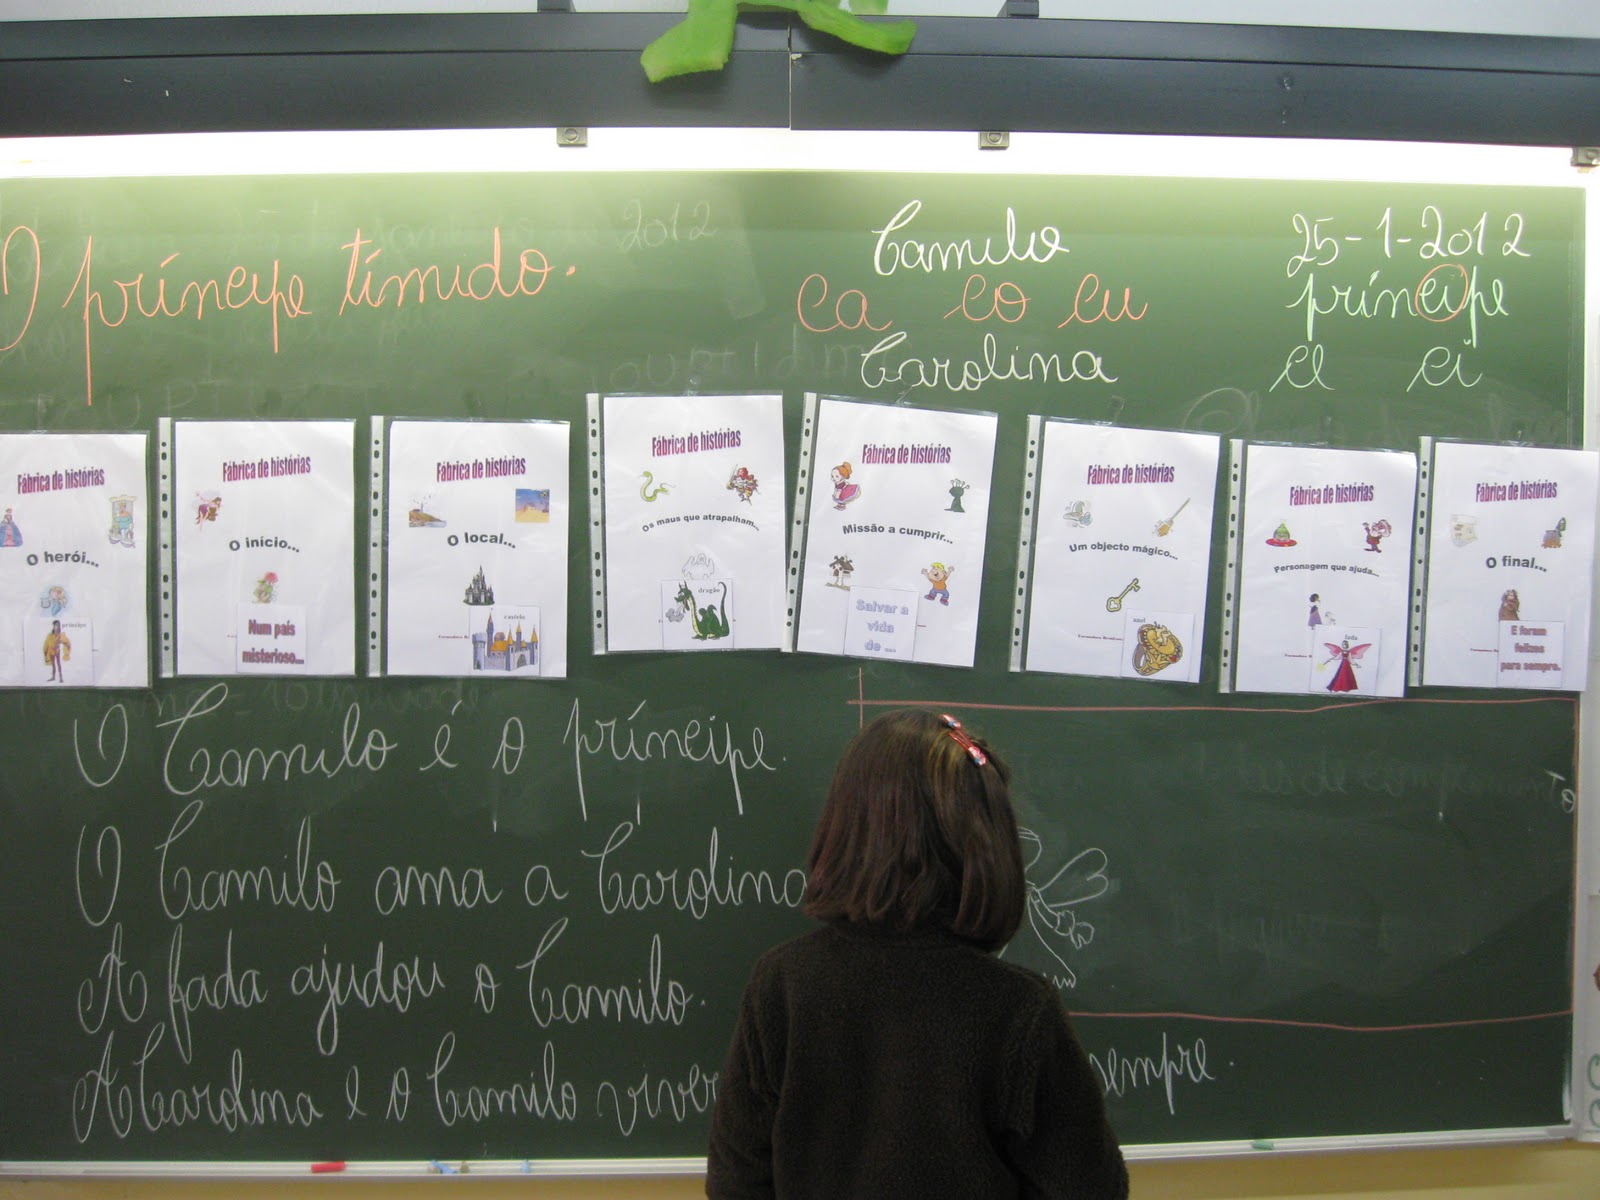 O príncipe tímido.
Camilo
ca co cu
Carolina
25-1-2012
príncipe
ce ci
Fábrica de histórias
O herói...
príncipe
Fábrica de histórias
O início...
Num país
misterioso...
Fábrica de histórias
O local...
castelo
Fábrica de histórias
Os maus que atrapalham...
dragão
Fábrica de histórias
Missão a cumprir...
Salvar a
vida
de ...
Fábrica de histórias
Um objecto mágico...
anel
Fábrica de histórias
Personagem que ajuda...
fada
Fábrica de histórias
O final...
E foram
felizes
para sempre.
O Camilo é o príncipe.
O Camilo ama a Carolina
A fada ajudou o Camilo.
A Carolina e o Camilo viver sempre.